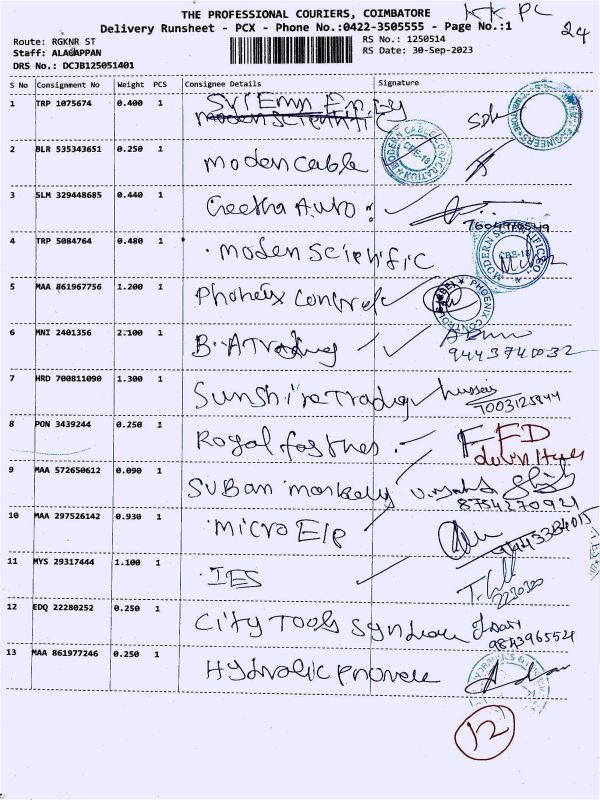 THE PROFESSIONAL COURIERS, COIMBATORE
KK PC
Delivery Runsheet - PCX - Phone No.:0422-3505555 - Page No.:1
24
Route: RGKNR ST
RS No.: 1250514
Staff: ALAGAPPAN
RS Date: 30-Sep-2023
DRS No.: DCJB125051401
S No Consignment No Weight PCS Consignee Details Signature
1 TRP 1075674 0.400 1
2 BLR 535343651 0.250 1 Moden Cable
MODERN CABLE CORPORATION CBE-18
3 SLM 329448685 0.440 1 Geetha Auto
4 TRP 5084764 0.480 1 Moden Scientific
MODERN SCIENTIFIC CO. CBE-18
5 MAA 861967756 1.200 1 Phoneix Control
PHOENIX CONTROL
6 MNI 2401356 2.100 1 B. A Trading
9443740032
7 HRD 700811090 1.300 1 Sunshine Trading Hussain
7003125944
8 PON 3439244 0.250 1 Royal fastnes FFD
9 MAA 572650612 0.090 1 SUBan
8754270921
10 MAA 297526142 0.930 1 Micro Elp
11 MYS 29317444 1.100 1 IES
12 EDQ 22280252 0.250 1 City Tools Syndicate
9843965521
13 MAA 861977246 0.250 1 Hydralic
12